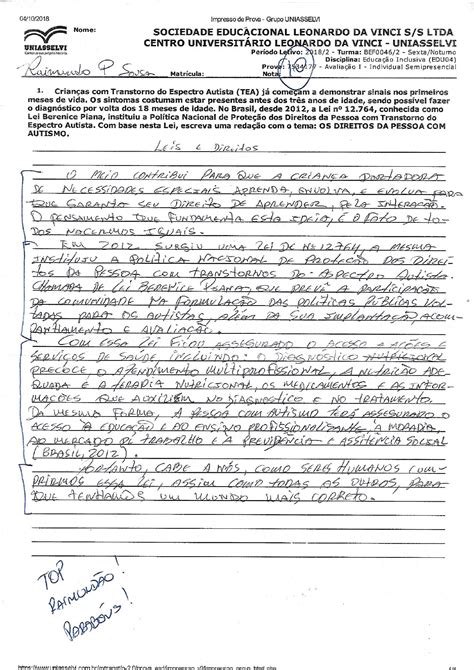 04/10/2018
Impresso de Prova - Grupo UNIASSELVI
Nome:
UNIASSELVI
SOCIEDADE EDUCACIONAL LEONARDO DA VINCI S/S LTDA
CENTRO UNIVERSITÁRIO LEONARDO DA VINCI - UNIASSELVI
Período Letivo: 2018/2 - Turma: BEF0046/2 - Sexta/Noturno
Disciplina: Educação Inclusiva (EDU04)
Prova: - Avaliação I - Individual Semipresencial
Raimundo P Sousa
Matrícula:
Nota:
10
1. Crianças com Transtorno do Espectro Autista (TEA) já começam a demonstrar sinais nos primeiros
meses de vida. Os sintomas costumam estar presentes antes dos três anos de idade, sendo possível fazer
o diagnóstico por volta dos 18 meses de idade. No Brasil, desde 2012, a Lei nº 12.764, conhecida como
Lei Berenice Piana, instituiu a Política Nacional de Proteção dos Direitos da Pessoa com Transtorno do
Espectro Autista. Com base nesta Lei, escreva uma redação com o tema: OS DIREITOS DA PESSOA COM
AUTISMO.
LEIS E DIREITOS
O MEIO CONTRIBUI PARA QUE A CRIANÇA PORTADORA
DE NECESSIDADES ESPECIAIS APRENDA, ENVOLVA, E EVOLUA PARA
QUE GARANTA SEU DIREITO DE APRENDER, PELA INTERAÇÃO.
O PENSAMENTO QUE FUNDAMENTA ESTA IDEIA, É O FATO DE TO-
DOS NACERMOS IGUAIS.
EM 2012 SURGIU UMA LEI DE Nº 12764, A MESMA
INSTITUIU A POLÍTICA NACIONAL DE PROTEÇÃO DOS DIREI-
TOS DA PESSOA COM TRANSTORNOS DO ASPECTRO AUTISTA.
CHAMADA DE LEI BERENICE PIANA, QUE PREVÊ A PARTICIPAÇÃO
DA COMUNIDADE NA FORMULAÇÃO DAS POLÍTICAS PÚBLICAS VOL-
TADAS PARA OS AUTISTAS, ALÉM DA SUA IMPLANTAÇÃO, ACOM-
PANHAMENTO E AVALIAÇÃO.
COM ESSA LEI FICOU ASSEGURADO O ACESSO A AÇÕES E
SERVIÇOS DE SAÚDE, INCLUINDO: O DIAGNÓSTICO NUTRICIONAL
PRECOCE, O ATENDIMENTO MULTIPROFISSIONAL, A NUTRIÇÃO ADE-
QUADA E A TERAPIA NUTRICIONAL, OS MEDICAMENTOS E AS INFOR-
MAÇÕES QUE AUXILIEM NO DIAGNÓSTICO E NO TRATAMENTO.
DA MESMA FORMA, A PESSOA COM AUTISMO TERÁ ASSEGURADO O
ACESSO À EDUCAÇÃO E AO ENSINO PROFISSIONALISANTE, À MORADIA,
AO MERCADO DE TRABALHO E À PREVIDÊNCIA E ASSITÊNCIA SOCIAL
(BRASIL, 2012).
PORTANTO, CABE A NÓS, COMO SERES HUMANOS CUM-
PRIRMOS ESSA LEI, ASSIM COMO TODAS AS OUTROS, PARA
QUE TENHAMOS UM MUNDO MAIS CORRETO.
TOP
RAIMUNDÃO!
PARABÉNS!